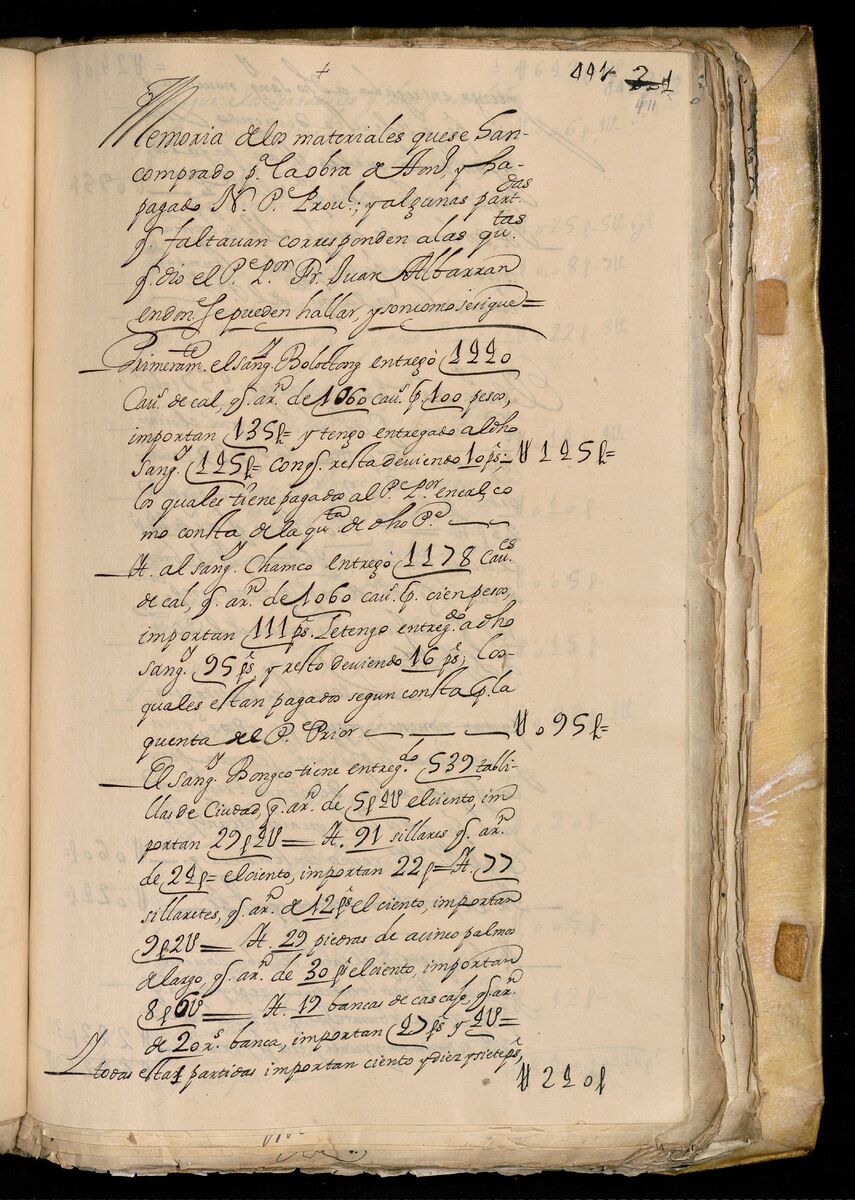 +
441 221
411
Memoria de los materiales que se han
comprado pª. la obra de Amd. y ha
pagado N. Pᵉ Provl.; y algunas part.das
q̃. faltavan corresponden a las qu.tas
q̃. dio el Pᵉ Por. Fr. Juan Albarran
en donᵉ se pueden hallar, y son como se sigue=
Primeram.te el sangˡʸ. Bolottong entregò 1440
Cauˢ. de cal, q̃. arⁿ. de 1060 cauˢ. p. 100 pesos,
importan 135p= y tengo entregado al dho
sangˡʸ. 125p= con q̃. resta deviendo 10 pˢ; – U 125p=
los quales tiene pagados al Pᵉ. Por. en cal, co
mo consta de la quta. de dho Pᵉ
It. al sangˡʸ. Chamco entregò 1178 Cauᵉˢ
de cal, q̃. arⁿ. de 1060 cauˢ. p. cien pesos,
importan 111 pˢ. Le tengo entreg.do a dho
sangˡʸ. 95 pˢ, y resto deviendo 16 pˢ; los
quales estan pagados segun consta p. la
quenta del Pᵉ. Prior — — — U o95p=
El sangˡʸ. Bongco tiene entreg.do 539 tabli-
llas de Ciudad, q̃. arⁿ. de 5p4U el ciento, im
portan 29p4U= It. 91 sillares q̃. arⁿ.
de 24p= el ciento, importan 22p= It. 77
silletes, q̃. arⁿ. de 12pˢ el ciento, importan
9p2U= It. 29 piedras de a cinco palmos
de largo, q̃. arⁿ. de 30 pˢ el ciento, importan
8p6U= It. 19 bancas de cascaje, q̃. arⁿ.
de 20 rˢ. banca, importan 47 pˢ y 4U=
Y todas estas partidas importan ciento y diez y siete pˢ,
U 220p